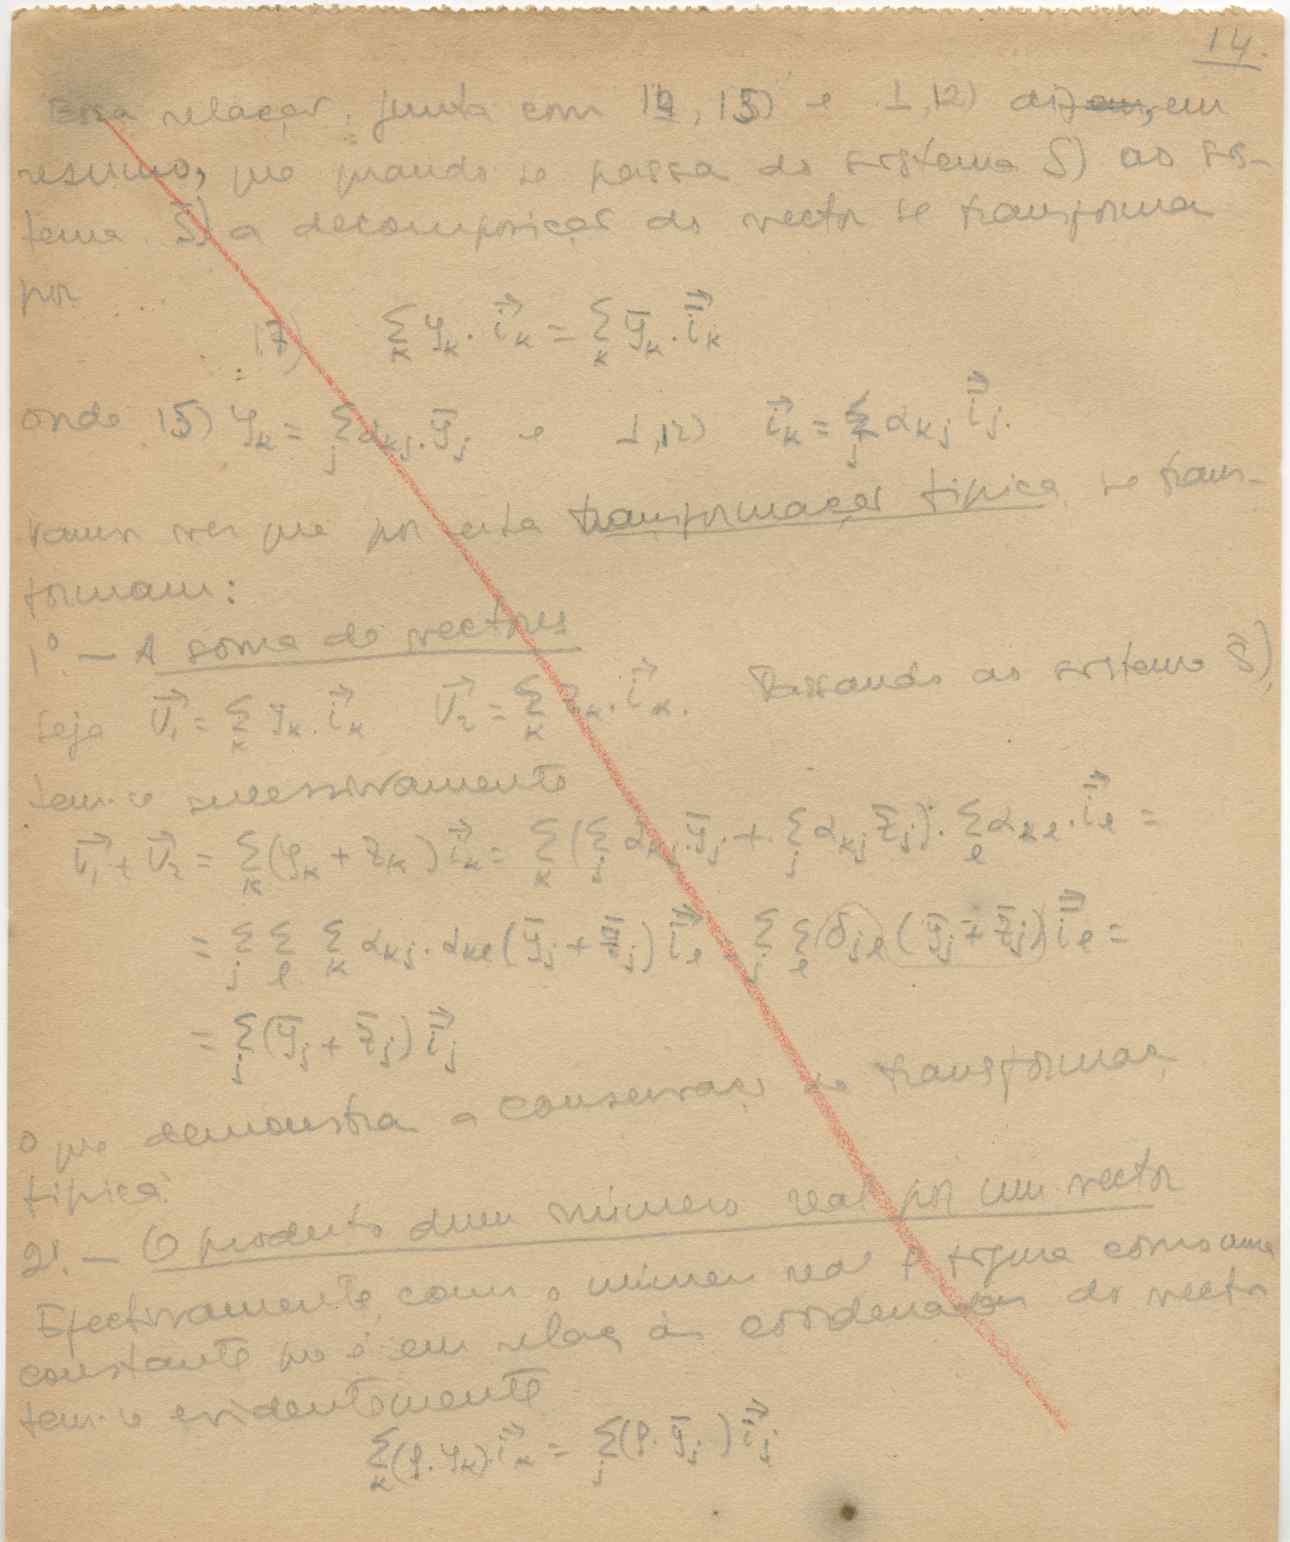 14.
Essa relação, junta com 14, 15) e 1,12) dizem, em
resumo, que quando se passa do sistema S) ao sis-
tema S̄) a decomposição do vector se transforma
por
17) Σ_k y_k · i⃗_k = Σ_k ȳ_k · ī⃗_k
onde 15) y_k = Σ_j α_kj · ȳ_j e 1,12) i⃗_k = Σ_j α_kj ī⃗_j.
vamos ver que por esta transformação típica se trans-
formam:
1º. — A soma de vectores
Seja V⃗_1 = Σ_k y_k · i⃗_k V⃗_2 = Σ_k z_k · i⃗_k. Passando ao sistema S̄),
tem-se sucessivamente
V⃗_1 + V⃗_2 = Σ_k (y_k + z_k) i⃗_k = Σ_k (Σ_j α_kj · ȳ_j + Σ_j α_kj z̄_j) · Σ_l α_kl · ī⃗_l =
= Σ_j Σ_l Σ_k α_kj · α_kl (ȳ_j + z̄_j) ī⃗_l = Σ_j Σ_l δ_jl (ȳ_j + z̄_j) ī⃗_l =
= Σ_j (ȳ_j + z̄_j) ī⃗_j
o que demonstra a conservaç da transformaç
típica.
2º. — O produto dum número real por um vector
Efectivamente, como o número real ρ figura como uma
constante que é em relaç às coordenadas do vector
tem-se evidentemente
Σ_k (ρ · y_k) · i⃗_k = Σ_j (ρ · ȳ_j) ī⃗_j